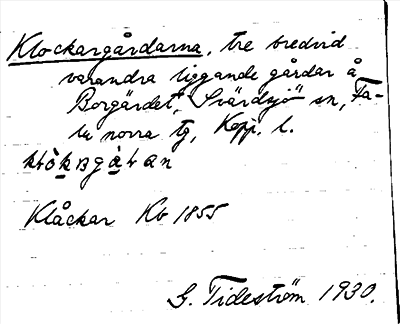 Klockargårdarna, tre bredvid
varandra liggande gårdar å
Borgärdet, Svärdsjö sn, Fa-
lu norra tg, Kopp. l.
Klåckar Kb 1855
G. Tideström 1930.